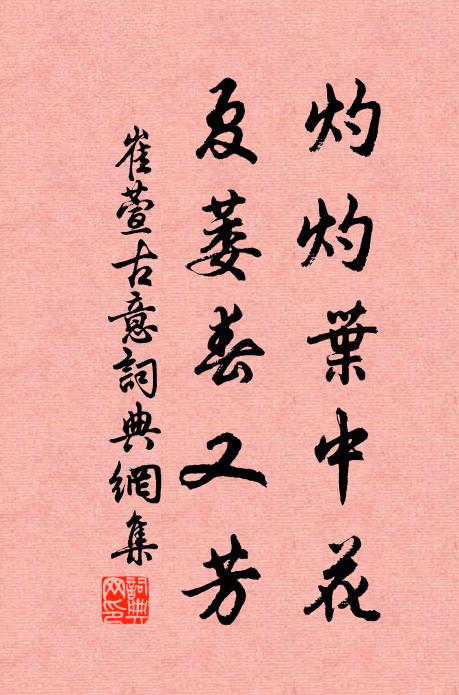 灼灼葉中花
夏萎春又芳
崔萱古意詞典網集
詞典
网印